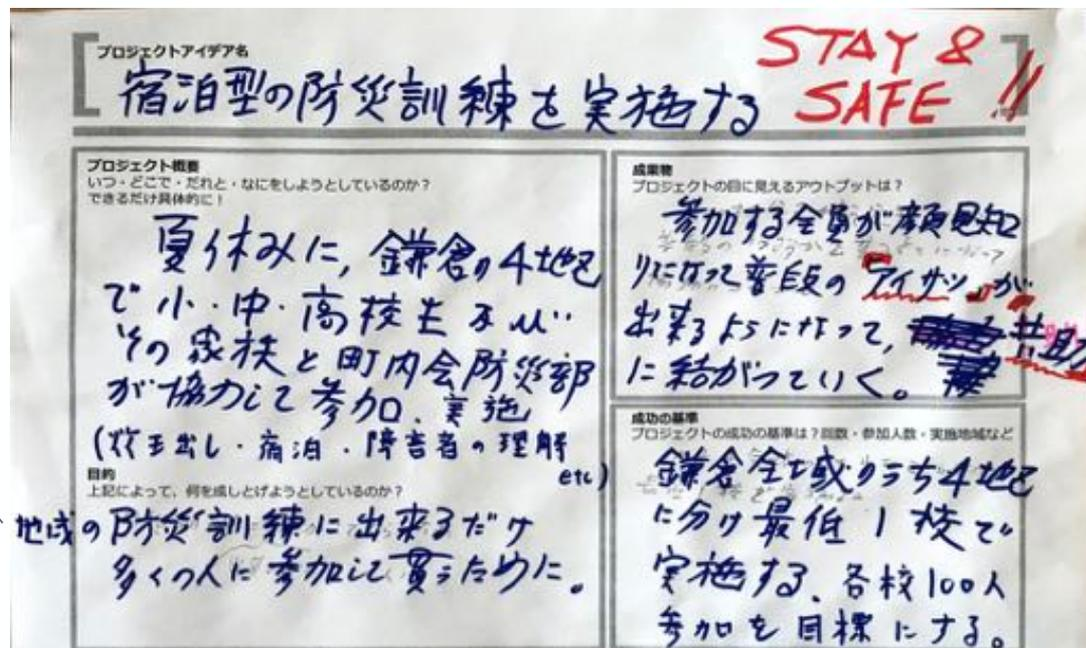 プロジェクトアイデア名
STAY &
SAFE !!
宿泊型の防災訓練を実施する
プロジェクト概要
いつ・どこで・だれと・なにをしようとしているのか?
できるだけ具体的に!
夏休みに,鎌倉の4地区
で小・中・高校生及び
その家族と町内会防災部
が協力して参加、実施
(炊き出し・宿泊・障害者の理解
etc)
目的
上記によって、何を成しとげようとしているのか?
地域の防災訓練に出来るだけ
多くの人に参加して貰うために。
成果物
プロジェクトの目に見えるアウトプットは?
参加する全員が顔見知
りになって普段の「アイサツ」が
出来るようになって,共助
に結がっていく。
成功の基準
プロジェクトの成功の基準は?回数・参加人数・実施地域など
鎌倉全域のうち4地区
に分け最低1校で
実施する、各校100人
参加を目標にする。